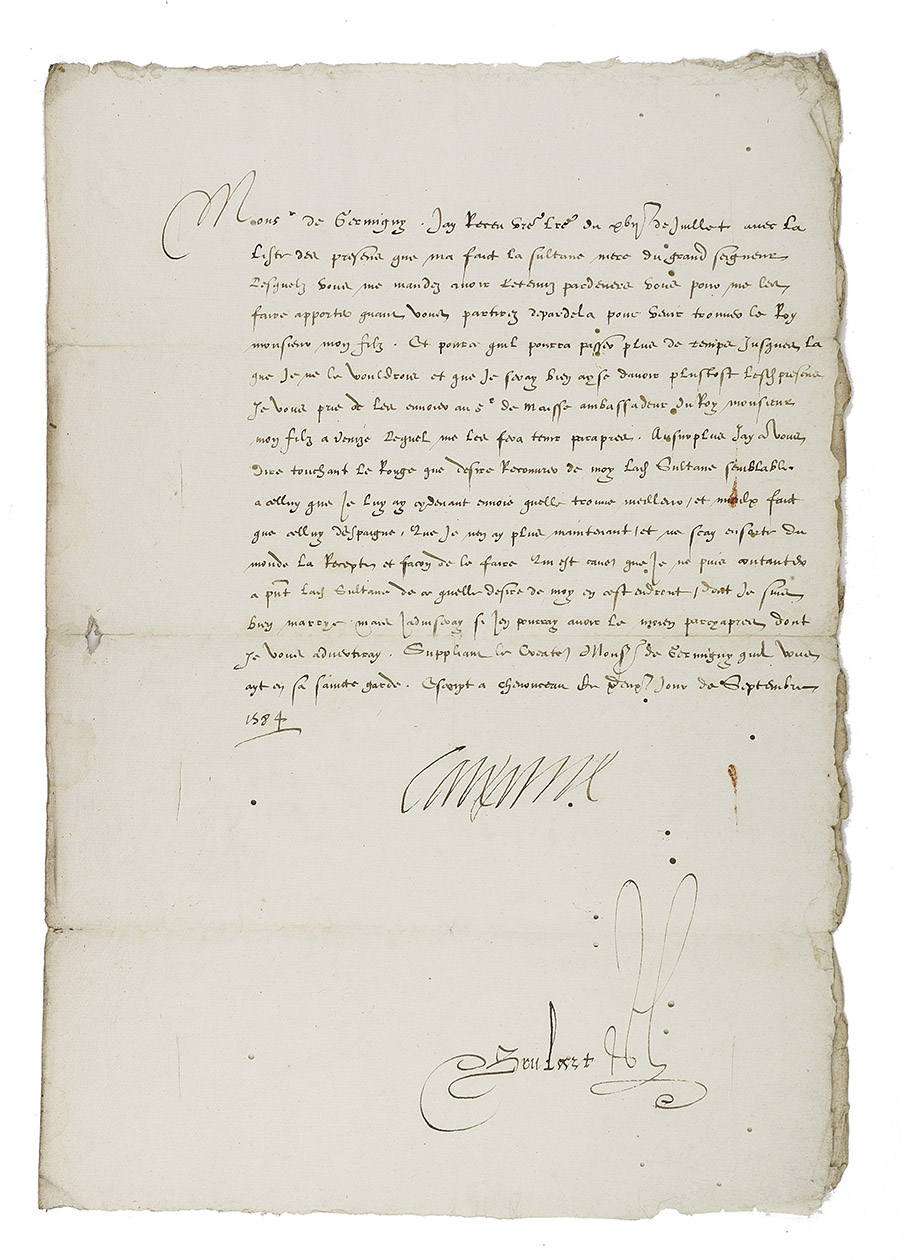 Monsr de Germigny. Jay Receu vre lre du xvije de Juillet avec la
liste des presens que ma faict la sultane mere du grand seigneur
Lesquelz vous me mandez avoir retenuz pardevers vous pour me les
faire apporter quant vous partirez depardela pour venir trouver le Roy
monsieur mon filz. Et pource quil pourra passer plus de temps Jusques la
que Je ne le vouldrois et que Je seray bien ayse davoir plustost lesd presens
Je vous prie de les envoier au sr de Maisse ambassadeur du Roy monsieur
mon filz a Venize Lequel me les fera tenir paraprés. Au surplus Jay a vous
dire touchant le Rouge que desire Recouvrer de moy lad Sultane semblable
a celluy que Je luy ay cydevant envoié quelle trouve meilleur, et mieulx faict
que celluy despaigne, Que Je nen ay plus maintenant, et ne scay en ceste du
monde la Recepte et facon de le faire Qui est cause que Je ne puis contanter
a pnt lad Sultane de ce quelle desire de moy en cest endroict, dont Je suis
bien marrye mais Jadviseray si Jen pourray avoir le moien parcyapres dont
Je vous advertiray. Suppliant le Createur Monsr de Germigny quil vous
ayt en sa saincte garde. Escript a chenonceau le deuxe Jour de Septembre
1584
Caterine
Brulart